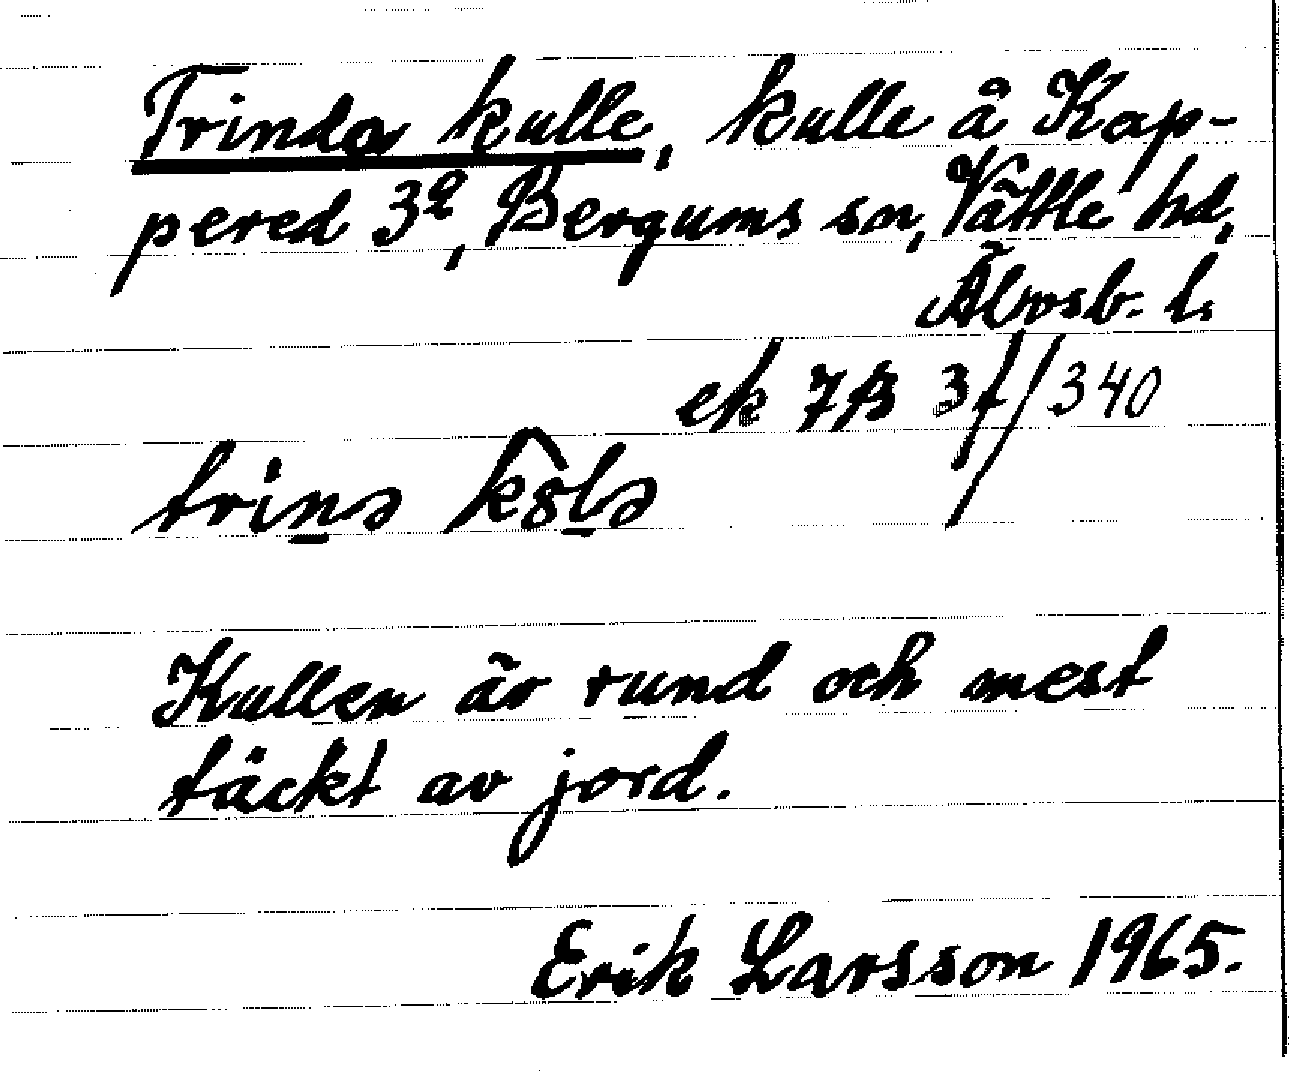 Trinda kulle, kulle å Kap-
pered 3², Bergums sn, Vättle hd,
Älvsb. l.
ek 7B 3f/340
trinə kȣlə
Kullen är rund och mest
täckt av jord.
Erik Larsson 1965.